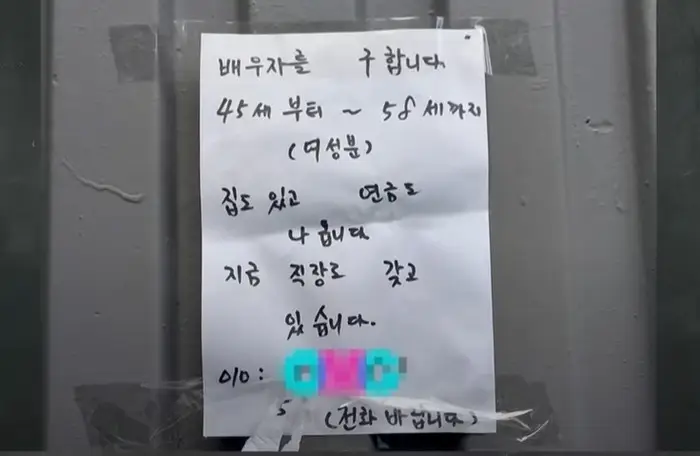 배우자를 구합니다
45세 부터 ~ 58세까지
(여성분)
집도 있고 연금도
나옵니다
지금 직장도 갖고
있습니다.
010:
5 (전화 바랍니다)